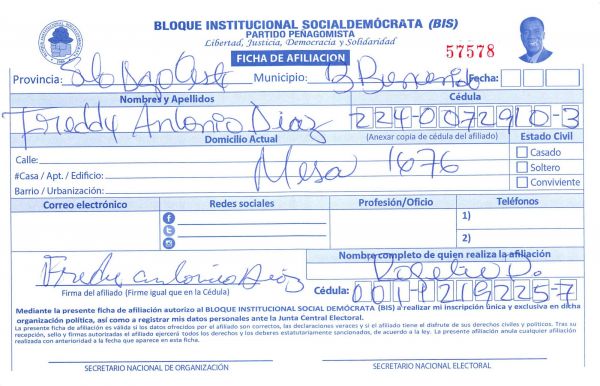 BLOQUE INSTITUCIONAL SOCIALDEMÓCRATA (BIS)
PARTIDO PEÑAGOMISTA
Libertad, Justicia, Democracia y Solidaridad
FICHA DE AFILIACION
57578
Provincia: Sto Dgo Oeste Municipio: Fecha:
Nombres y Apellidos Cédula
Freddy Antonio Diaz 224-0072910-3
Domicilio Actual (Anexar copia de cédula del afiliado) Estado Civil
Calle: Casado
Mesa 1676
#Casa / Apt. / Edificio: Soltero
Barrio / Urbanización: Conviviente
Correo electrónico Redes sociales Profesión/Oficio Teléfonos
1)
2)
Nombre completo de quien realiza la afiliación
Fredy antonio Diaz
Firma del afiliado (Firme igual que en la Cédula) Cédula: 001-1219225-7
Mediante la presente ficha de afiliación autorizo al BLOQUE INSTITUCIONAL SOCIAL DEMÓCRATA (BIS) a realizar mi inscripción única y exclusiva en dicha
organización política, así como a registrar mis datos personales ante la Junta Central Electoral.
La presente ficha de afiliación es válida si los datos ofrecidos por el afiliado son correctos, las declaraciones veraces y si el afiliado tiene el disfrute de sus derechos civiles y políticos. Tras su
recepción, sello y firmas autorizadas el afiliado ejercerá todos los derechos y los deberes estatutariamente sancionados, de acuerdo a la ley. La presente afiliación anula cualquier afiliación
realizada con anterioridad a la fecha que aparece en esta ficha.
SECRETARIO NACIONAL DE ORGANIZACIÓN SECRETARIO NACIONAL ELECTORAL